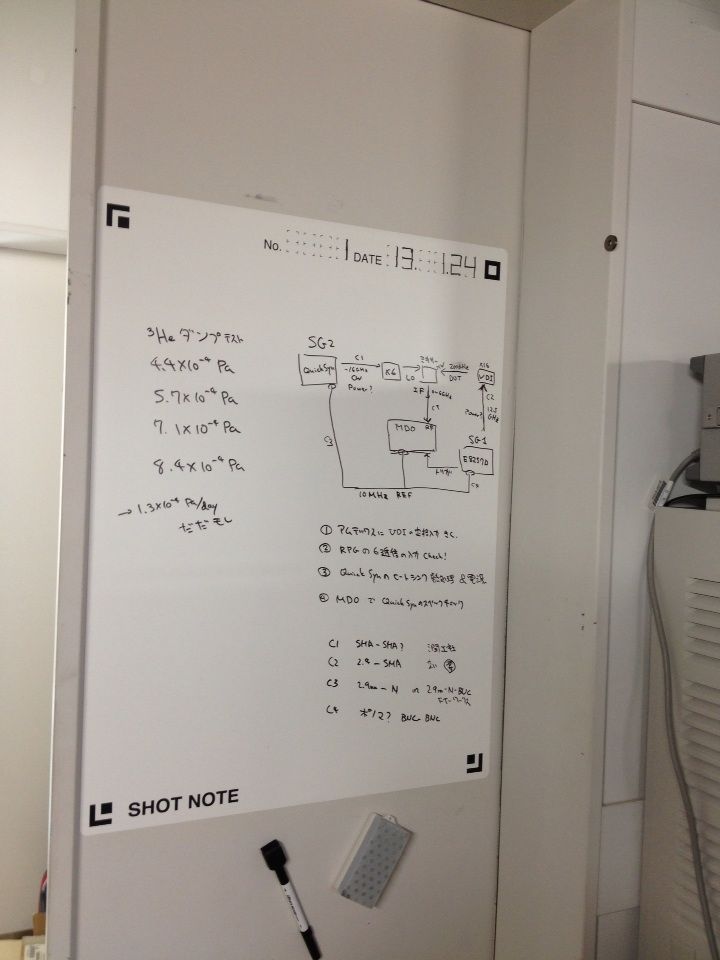 No. 1 DATE 13. 1.24
³He ダンプテスト
4.4×10⁻⁴ Pa
5.7×10⁻⁴ Pa
7.1×10⁻⁴ Pa
8.4×10⁻⁴ Pa
→ 1.3×10⁻⁴ Pa/day
だだモレ
SG2
QuickSyn
C1
~16GHz
CW
Power?
×6
LO
IF
200GHz
DUT
×16
VDI
C2
12.5
GHz
Power?
MDO
SG1
E8257D
トリガ
C3
C4
10MHz REF
① アムテックスに VDIの
② RPGの6逓倍の入力 Check!
③ QuickSynのヒートシンク &電源
④ MDO で QuickSynのスペックチェック
C1 SMA-SMA?
C2 2.4-SMA
C3 2.9mm-N or 2.9m-N-BNC
C4 BNC BNC
SHOT NOTE